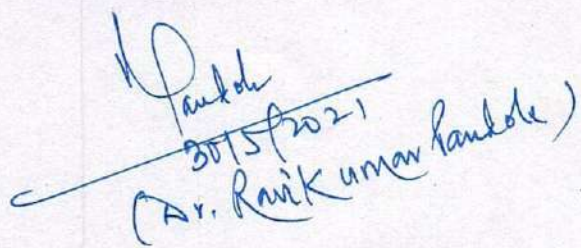 Pandole
30/5/2021
(Dr. Ravikumar Pandole)